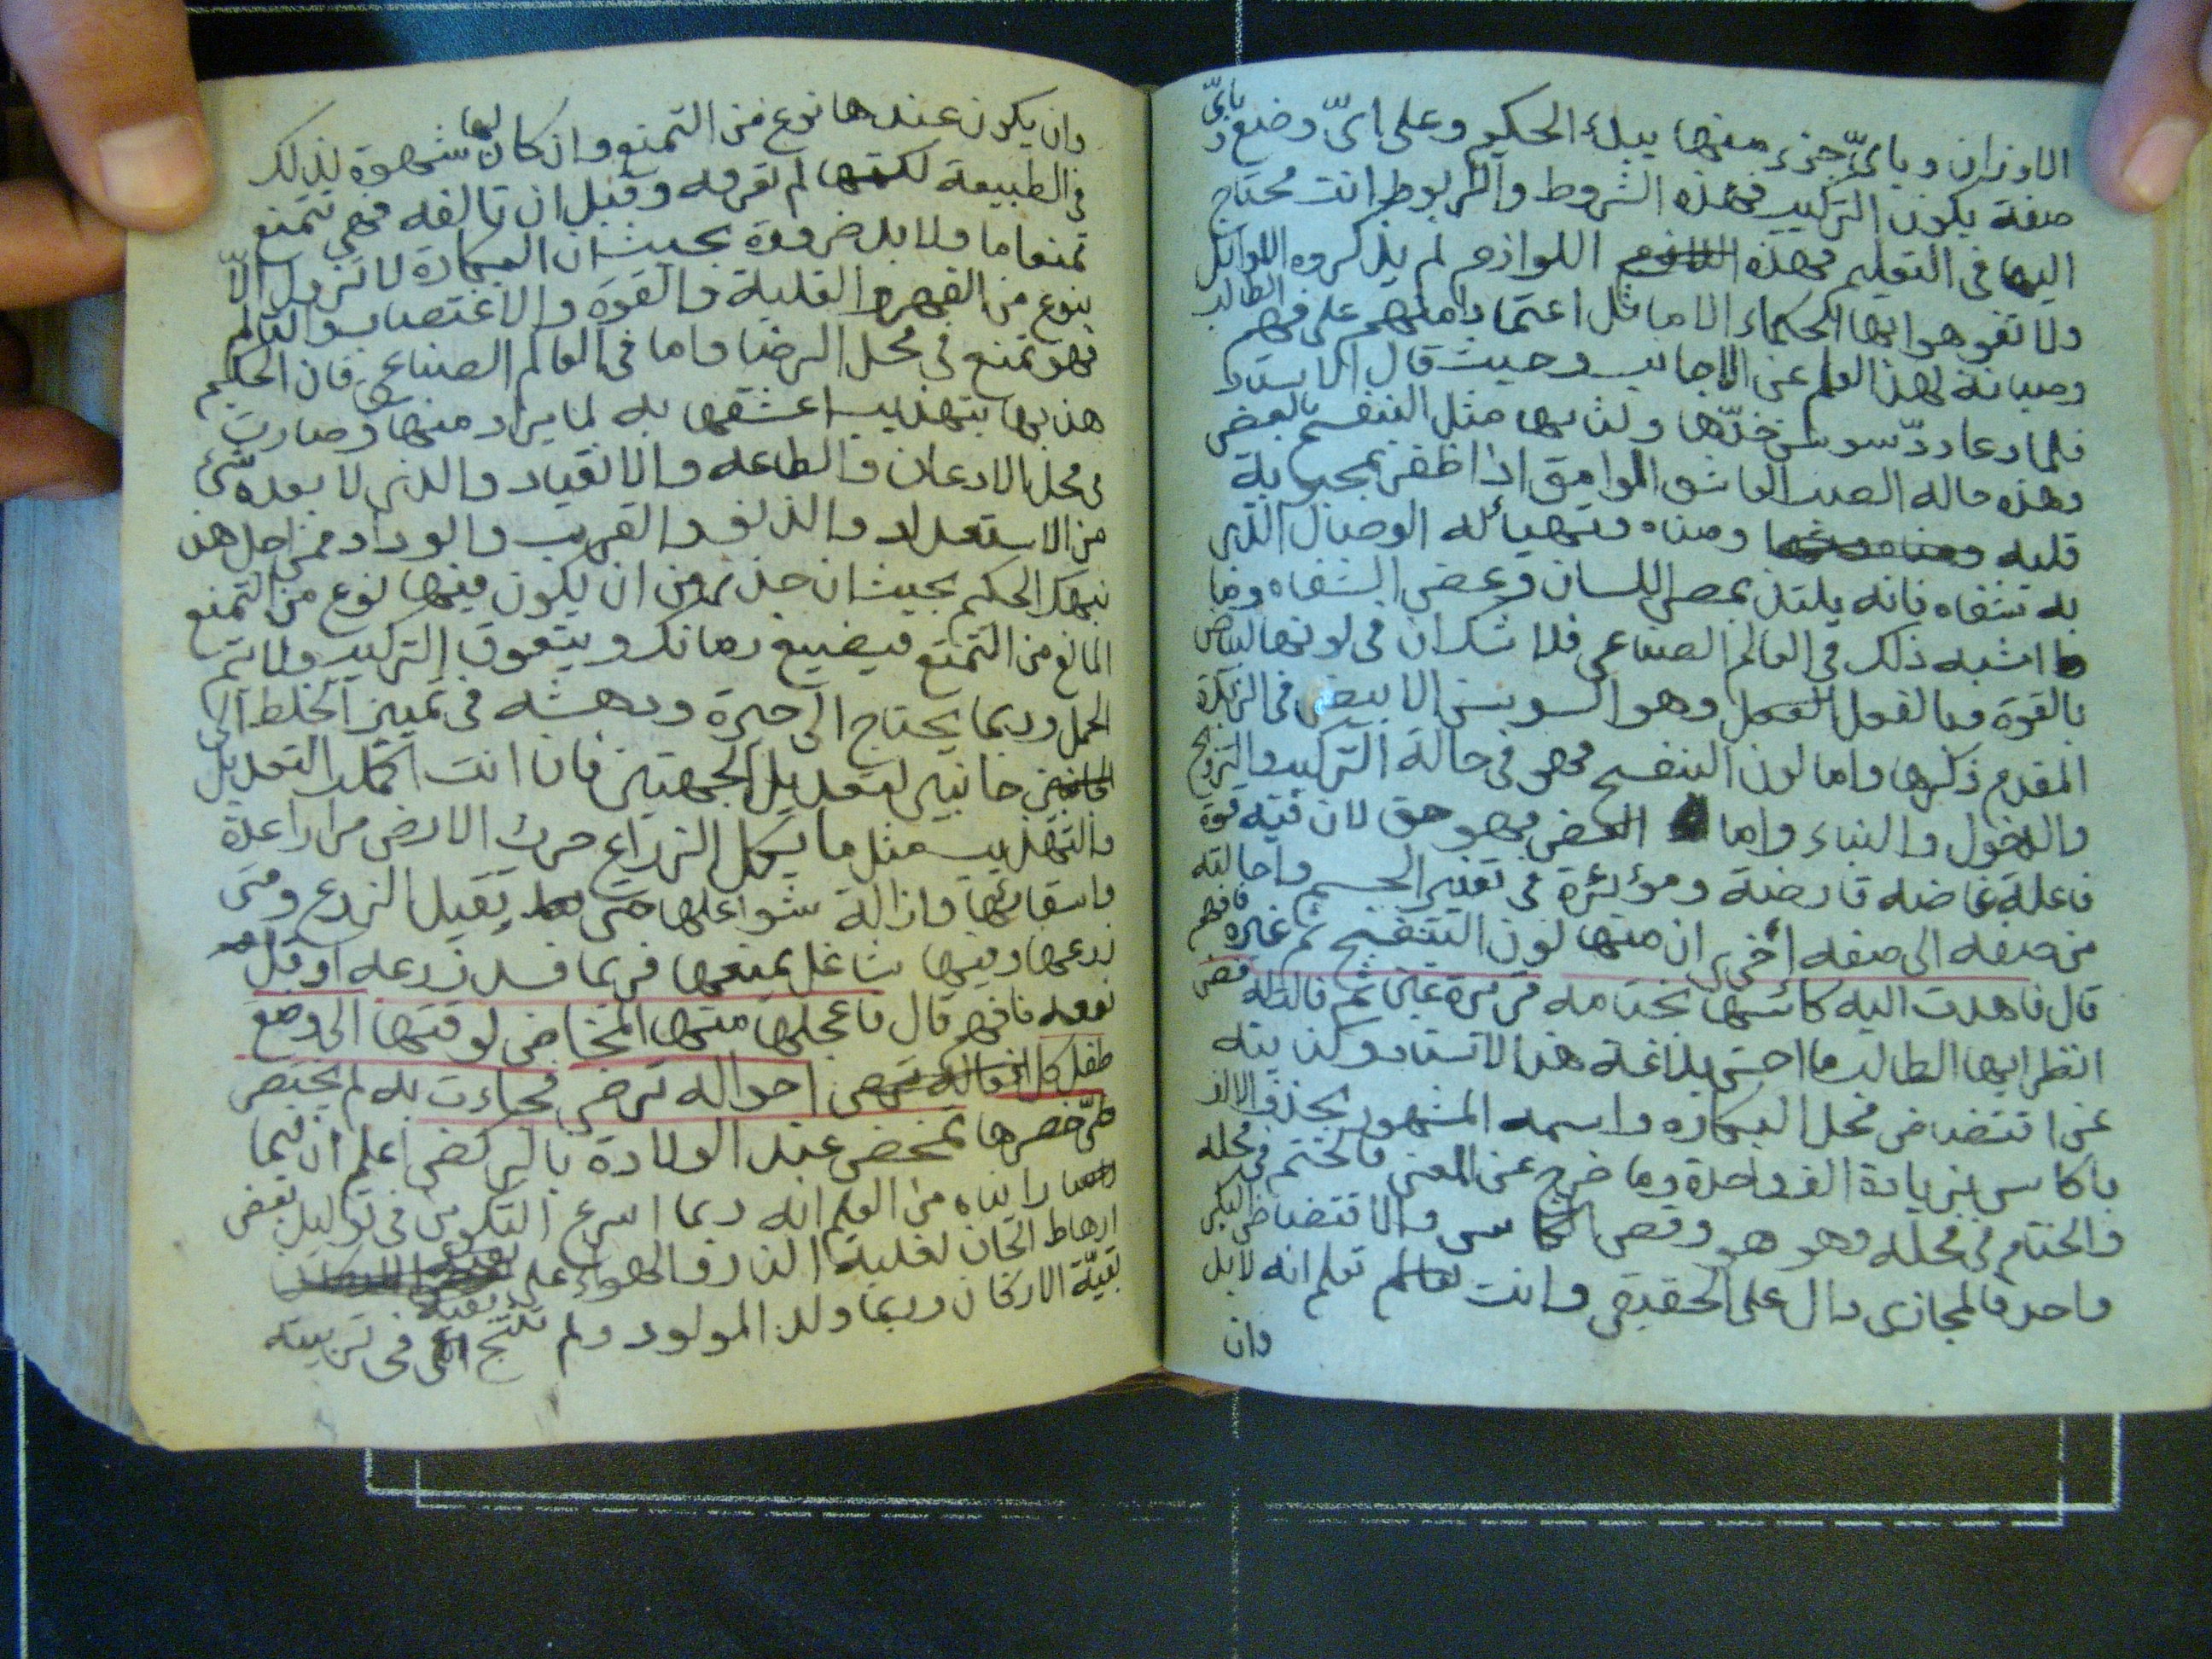 الاوزان وباىّ جزء منها يبدء الحكيم وعلى اىّ وضع وباىّ
صفة يكون التركيب فهذه الشروط والربوط انت محتاج
اليها فى التعليم فهذه اللوازم لم يذكروه الاوائل
ولا تفوهوا بها الحكماء الا ما قل اعتمادا منهم على فهم الطالب
وصيانة لهذا العلم عن الاجانب وحيث قال الاستاد
فلما دعا ردّ سوسن خدّها ولثمها مثل البنفسج بالعض
وهذه حالة الصب العاشق الوامق اذا ظفر بمحبوبة
قلبه ومناه وتهيأ له الوصال الذى
به شفاه فانه يلتذ بمص اللسان وعض الشفاه وما
اشبه ذلك فى العالم الصناعى فلا شك ان فى لونها البياض
بالقوة وبالفعل وهو السوسن الابيض فى الزهرة
المقدم ذكرها واما لون البنفسج فهو فى حالة التركيب والتزويج
والدخول والبناء واما العض فهو حق لان فيه قوة
فاعلة غاضه قارضة ومؤثرة فى تغيير الجسم واحالته
من صفه الى صفه اخرى ان منها لون البنفسج ثم غيره فافهم
قال فاهدت اليه كاسها بختامه قرير عين ثم قالت له فض
انظر ايها الطالب ما احسن بلاغة هذا الاستاد وكنايته
عن اقتضاض محل البكاره واسمه المشهور بحذف الالف
باكاس بزيادة الف واحدة وما خرج عن المعنى فالختم فى محله
والختم فى محله وهو هو وفض الكاس والاقتضاض البكر
واحد فالمجازى دال على الحقيقى وانت تعلم انه لابد
وان
وان يكون عندها نوع من التمنع وان كان لها شهوة لذلك
فى الطبيعة لكنها لم تعرفه وقبل ان تالفه فهى تتمنع
تمنعا ما ولا بد ضرورة بحيث ان البكارة لا تزول الّا
بنوع من القهر والغلبة والقوة والاغتصاب والتالم
فهو تمنع فى محل الرضا واما فى العالم الصناعى فان الحكيم
هذبها بتهذيب اعشقها به لما يراد منها وصارت
فى محل الادعان والطاعه والانقياد والذى لا بعده شئ
من الاستعداد والذلف والقرب والوداد فمن اجل هذا
نبهك الحكيم بحيث ان حذر من ان يكون فيها نوع من التمنع
المانع من التمتع فيضيع زمانك ويتعوق التركيب ولا يتم
الحمل وربما يحتاج الى حيرة ودهشه فى تمييز الخلط الى
جانبى لتعديل الجهتين فان انت اكملت التعديل
والتهذيب مثل ما يكمل الزراع حرث الارض مرارا عدة
واسقائها وازالة شواغلها حتى تقبل الزرع ومتى
زرعها وفيها شاغل يمنعها فربما فسد زرعه او قل
نفعه فافهم قال فاعجلها منها المخاض لوقتها الى وضع
طفل كل احواله ترضى فجاءت به لم يختص
طىّ خصرها تمخض عند الولادة بالركض اعلم ان فيما
رايناه من العلم انه ربما اسرع التكوين فى توليد بعض
ارهاط الجان لغلبة النار والهواء على
بقيّة الاركان وربما ولد المولود ولم ينتج فى تربيته